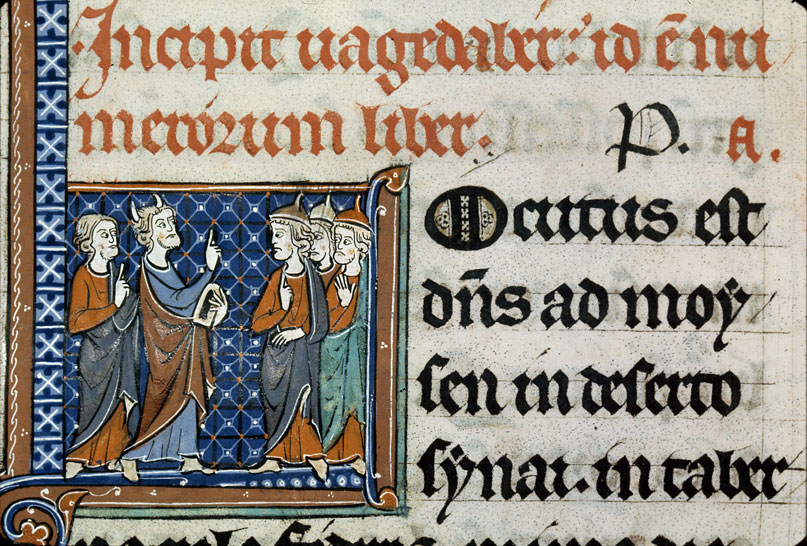 Incipit uagedaber: id ē nu
merorum liber. P. A.
Ocutus est
dñs ad moy
sen in deserto
synai. in taber